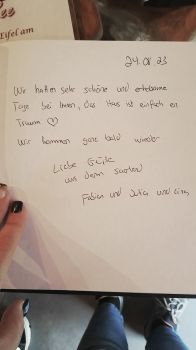 Eifel am
24.08.23
Wir hatten sehr schöne und
Tage bei Ihnen, das Haus ist einfach ein
Traum ♡
Wir kommen ganz bald wieder
Liebe Grüße
aus dem
Fabian und Julia und